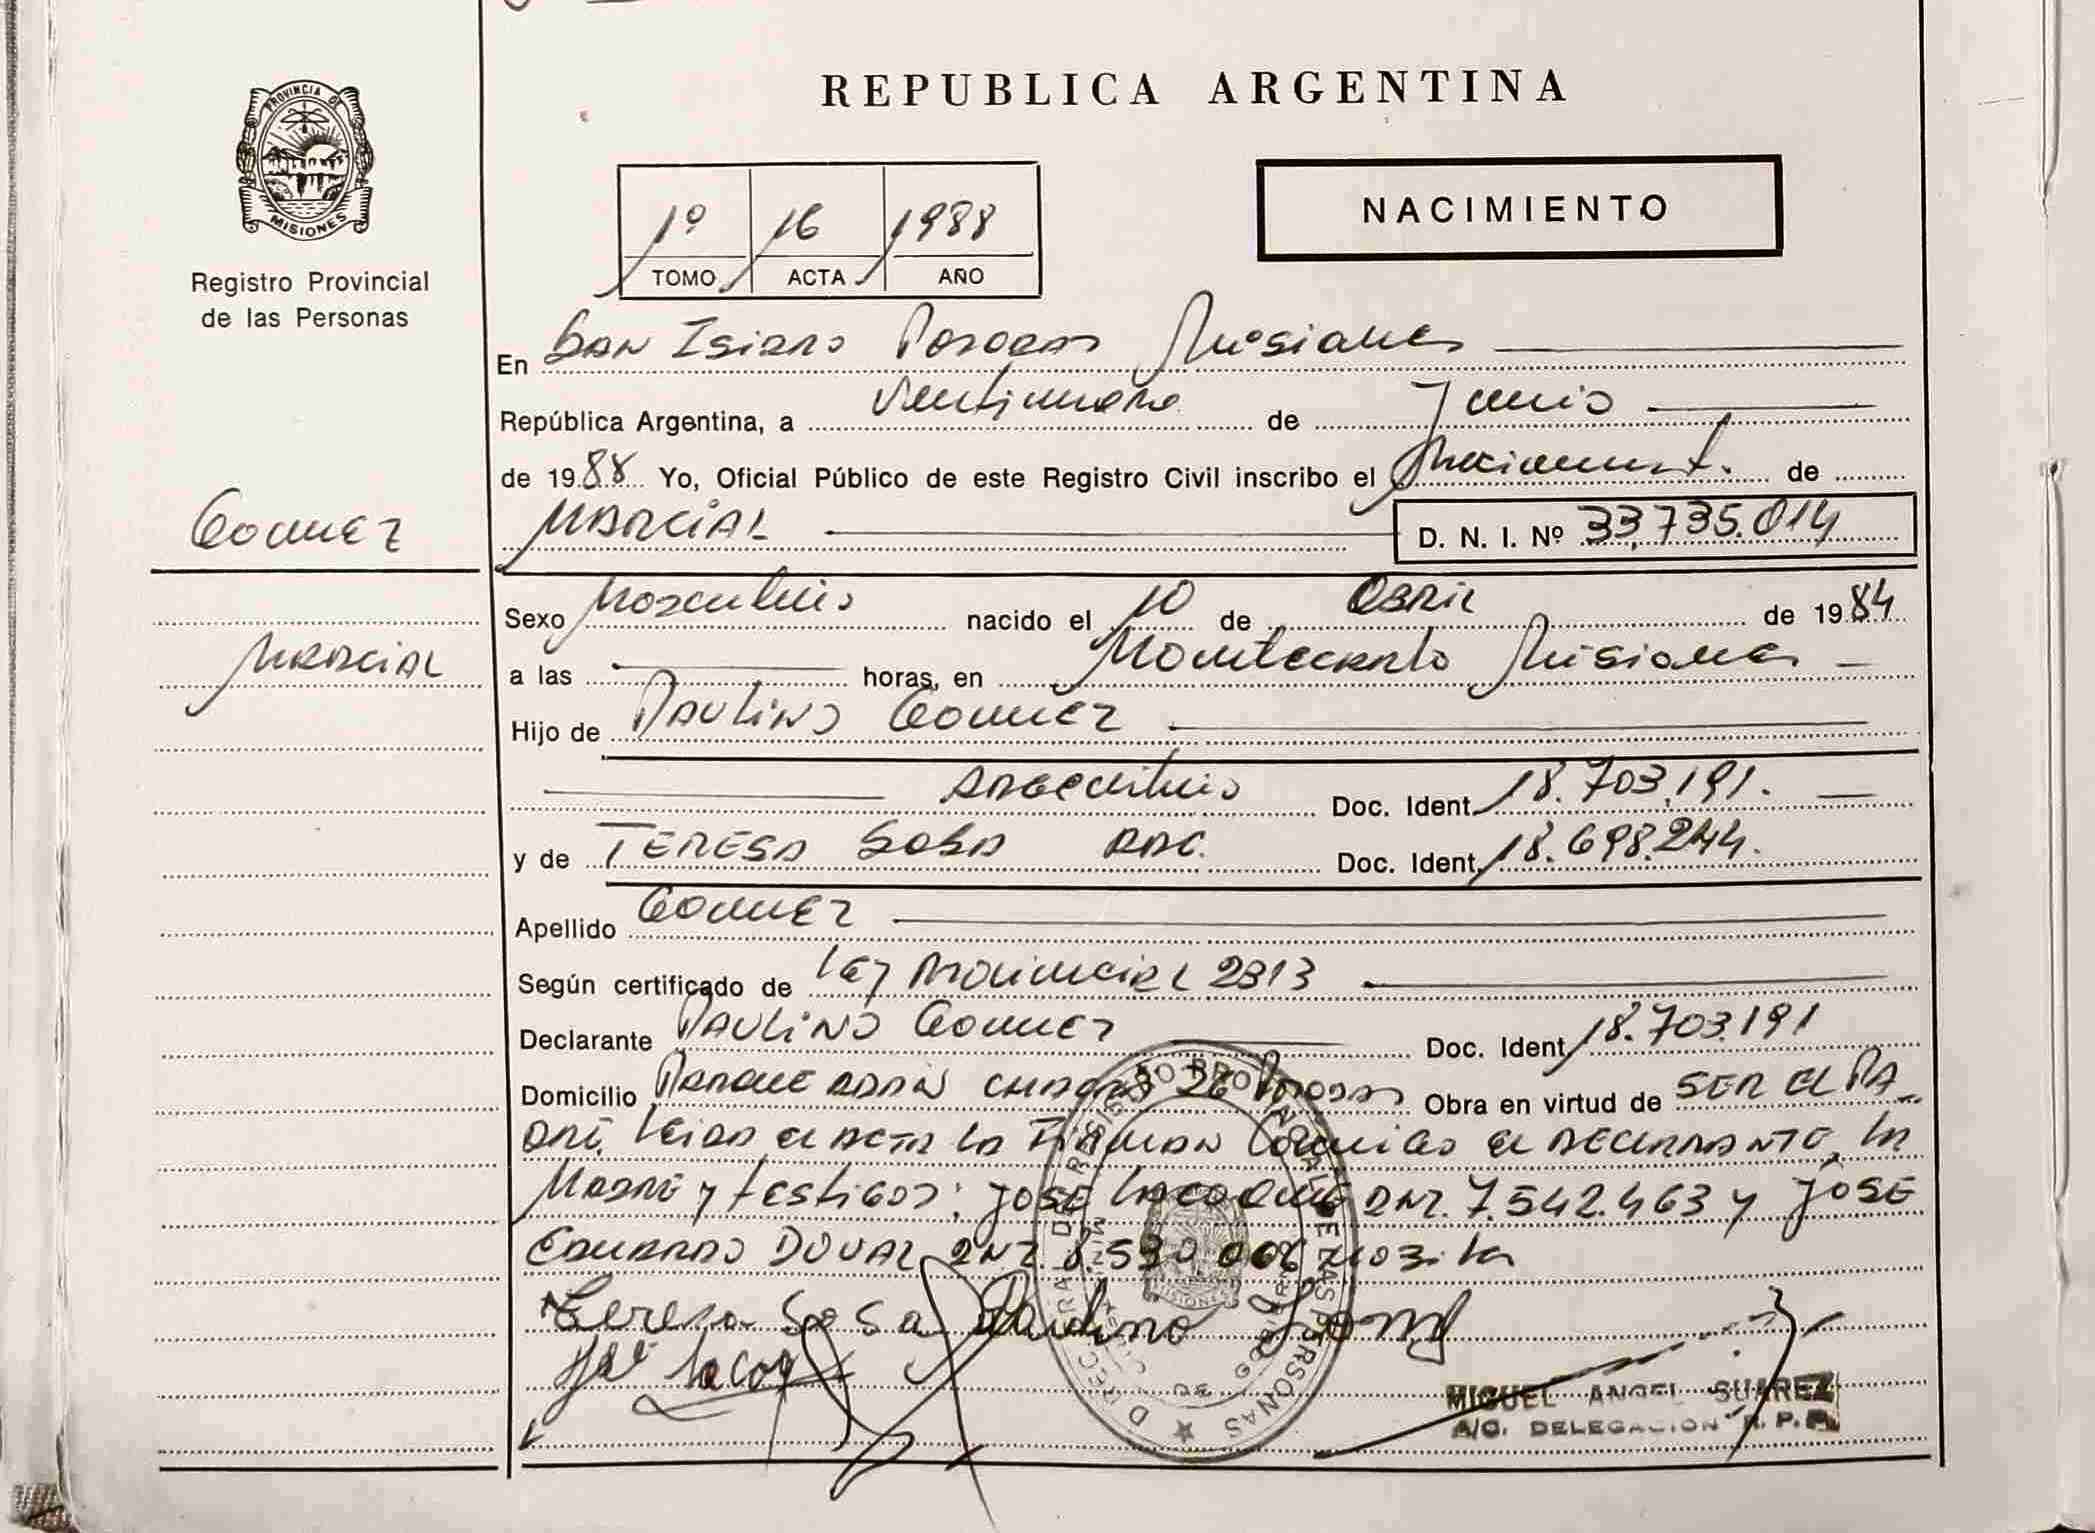 REPUBLICA ARGENTINA
PROVINCIA DE
MISIONES
Registro Provincial
de las Personas
1º 16 1988
TOMO ACTA AÑO
NACIMIENTO
En San Isidro Posadas Misiones
República Argentina, a Veintinueve de Junio
de 1988 Yo, Oficial Público de este Registro Civil inscribo el Nacimient. de
Gomez
MARCIAL D. N. I. Nº 33,735.014
Sexo Masculino nacido el 10 de Abril de 1984
MARCIAL
a las horas, en Montecarlo Misiones
Hijo de PAULINO Gomez
Argentino Doc. Ident. 18.703.191.
y de TERESA SOSA ARG. Doc. Ident. 18.698.244.
Apellido Gomez
Según certificado de Ley Provincial 2313
Declarante PAULINO Gomez Doc. Ident. 18.703.191
Domicilio PARQUE ADAM CHACRA 26 Posadas Obra en virtud de SER EL PA
DRE, Leida el acta la FIRMAN Conmigo el DECLARANTE, la
Madre y testigos: JOSE LACOQUE DNI. 7.542.463 y JOSE
EDUARDO DUVAL DNI. 8.530.006
Teresa Sosa Paulino Gomez
MIGUEL ANGEL SUAREZ
A/C. DELEGACION R. P. P.
DIRECC. GRAL. DE REGISTRO PROVINCIAL DE LAS PERSONAS
MISIONES